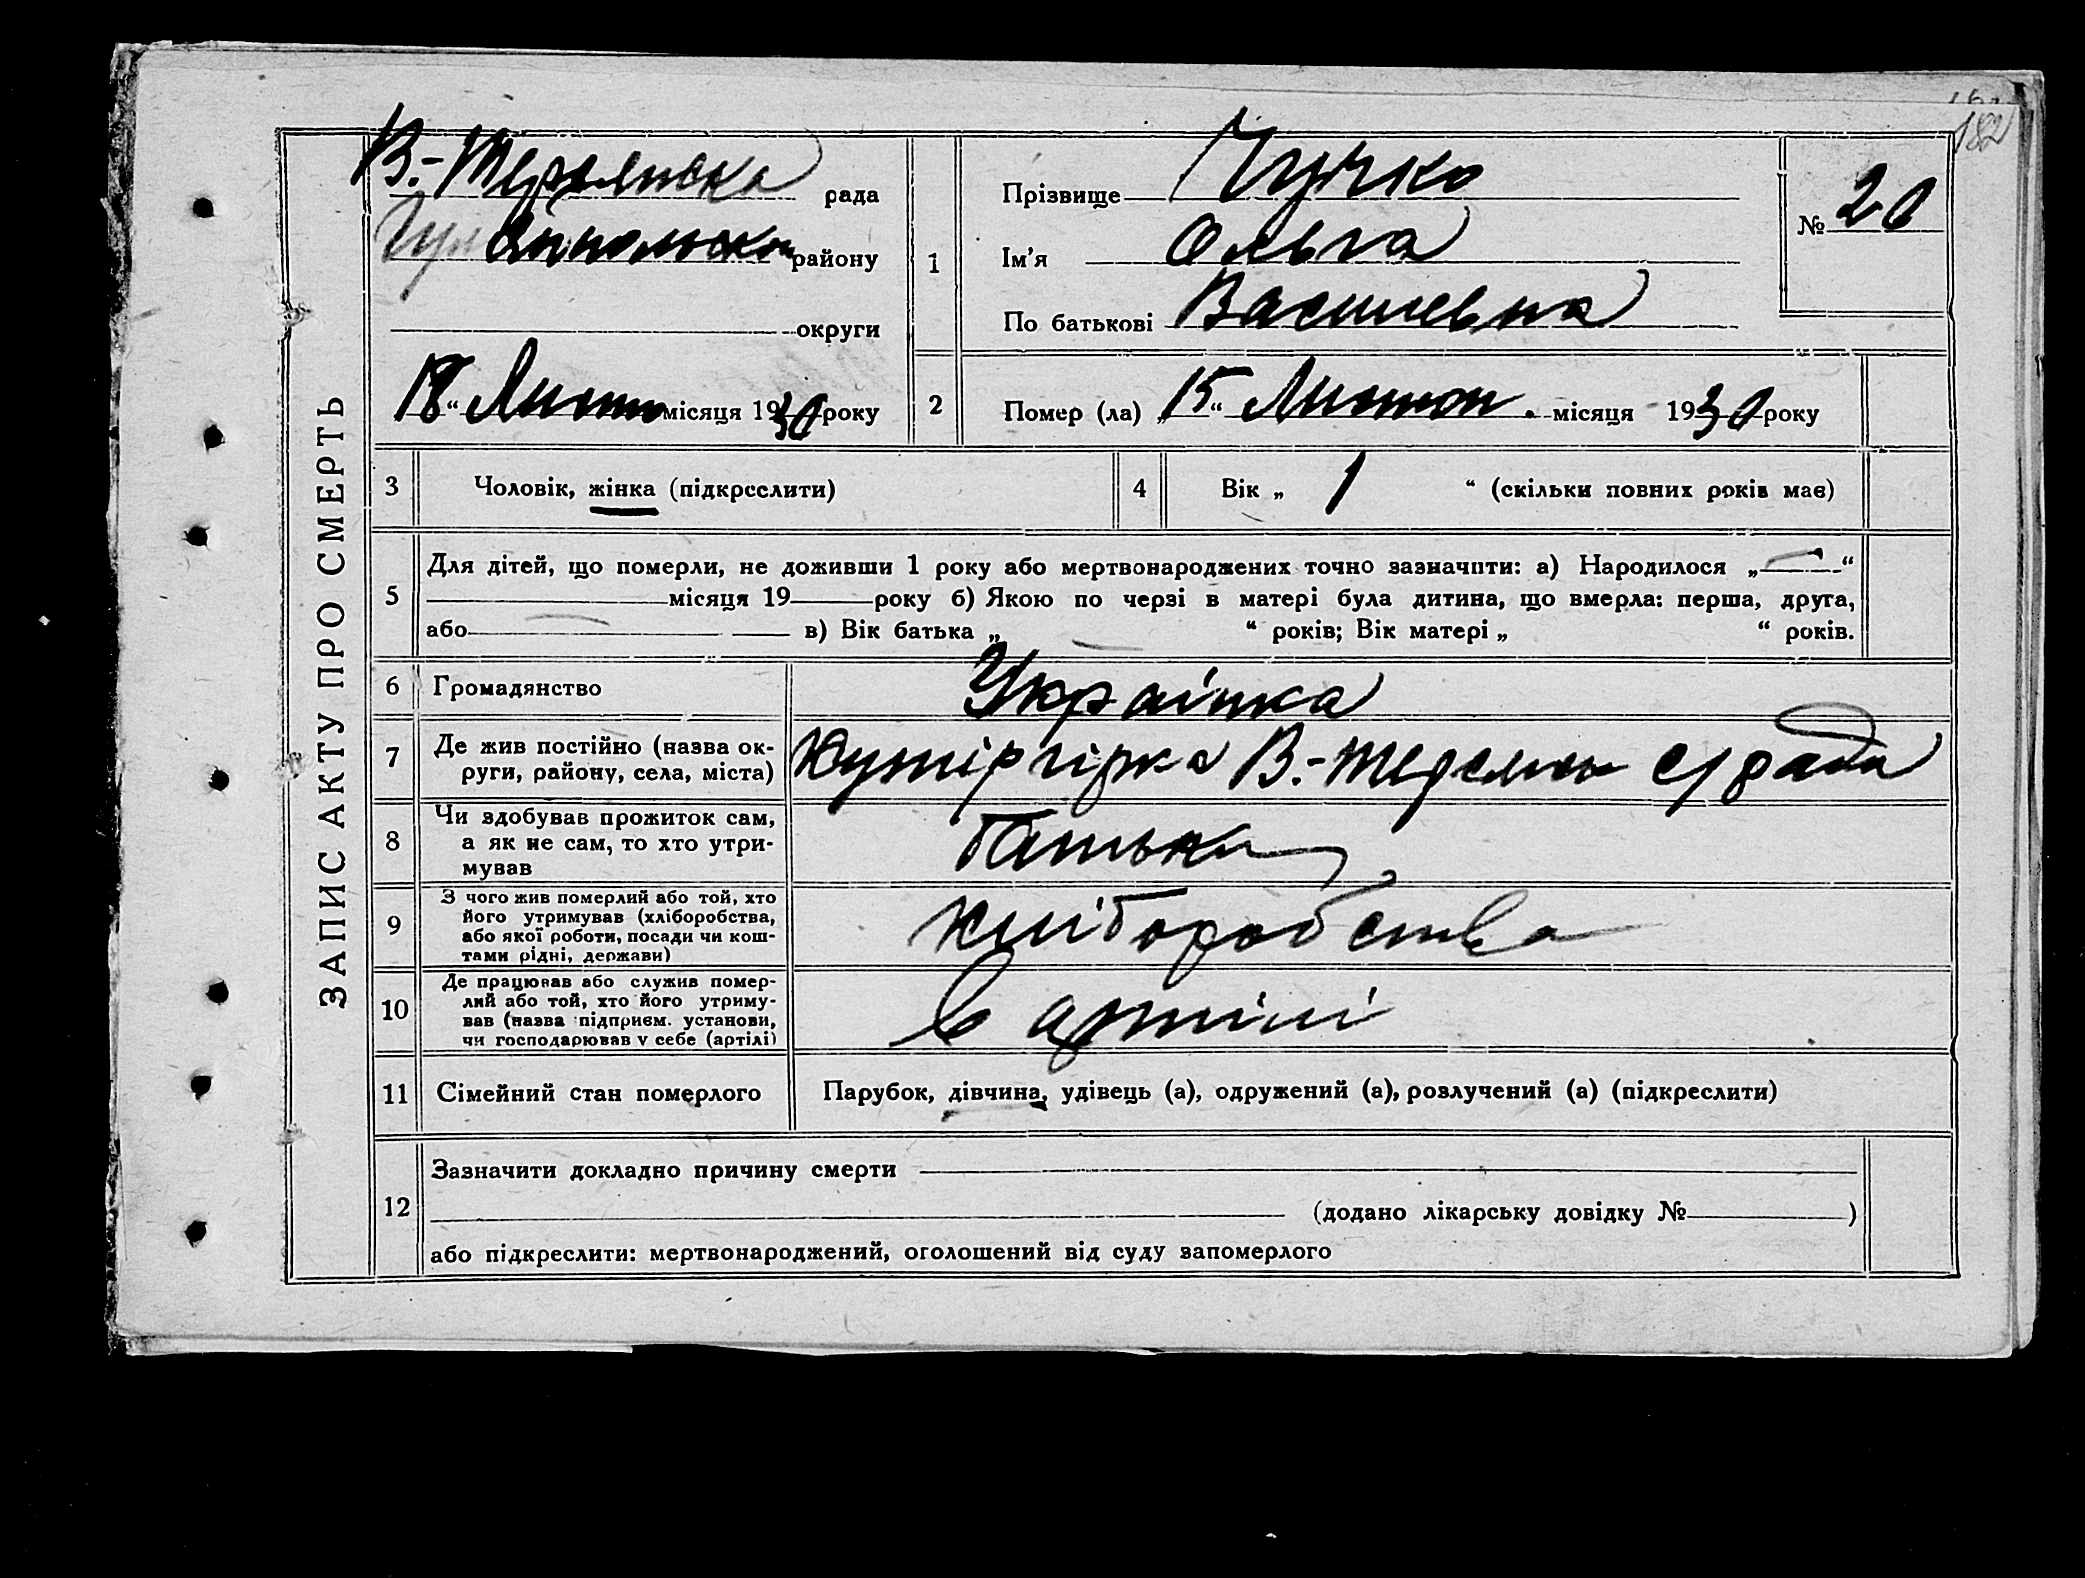 182
ЗАПИС АКТУ ПРО СМЕРТЬ
В.-Терсянска рада
Гуляйпольском району
округи
18 “ Лютого місяця 1930 року
1
Прізвище Чучко
Ім'я Ольга
По батькові Васильевна
№ 20
2
Помер (ла) „ 15 “ Лютого . місяця 1930 року
3 Чоловік, жінка (підкреслити)
4 Вік „ 1 “ (скільки повних років має)
5
Для дітей, що померли, не доживши 1 року або мертвонароджених точно зазначити: а) Народилося „ — “
місяця 19 року б) Якою по черзі в матері була дитина, що вмерла: перша, друга,
або в) Вік батька „ “ років; Вік матері „ “ років.
6 Громадянство Українка
7 Де жив постійно (назва ок-
руги, району, села, міста) Хутір гірка В.-Терсянск с/рада
8
Чи здобував прожиток сам,
а як не сам, то хто утри-
мував
батьки
9
З чого жив померлий або той, хто
його утримував (хліборобства,
або якої роботи, посади чи кош-
тами рідні, держави)
хліборобства
10
Де працював або служив помер-
лий або той, хто його утриму-
вав (назва підприєм. установи,
чи господарював у себе (артілі)
в артілі
11 Сімейний стан померлого Парубок, дівчина, удівець (а), одружений (а), розлучений (а) (підкреслити)
12
Зазначити докладно причину смерти
(додано лікарську довідку № )
або підкреслити: мертвонароджений, оголошений від суду запомерлого